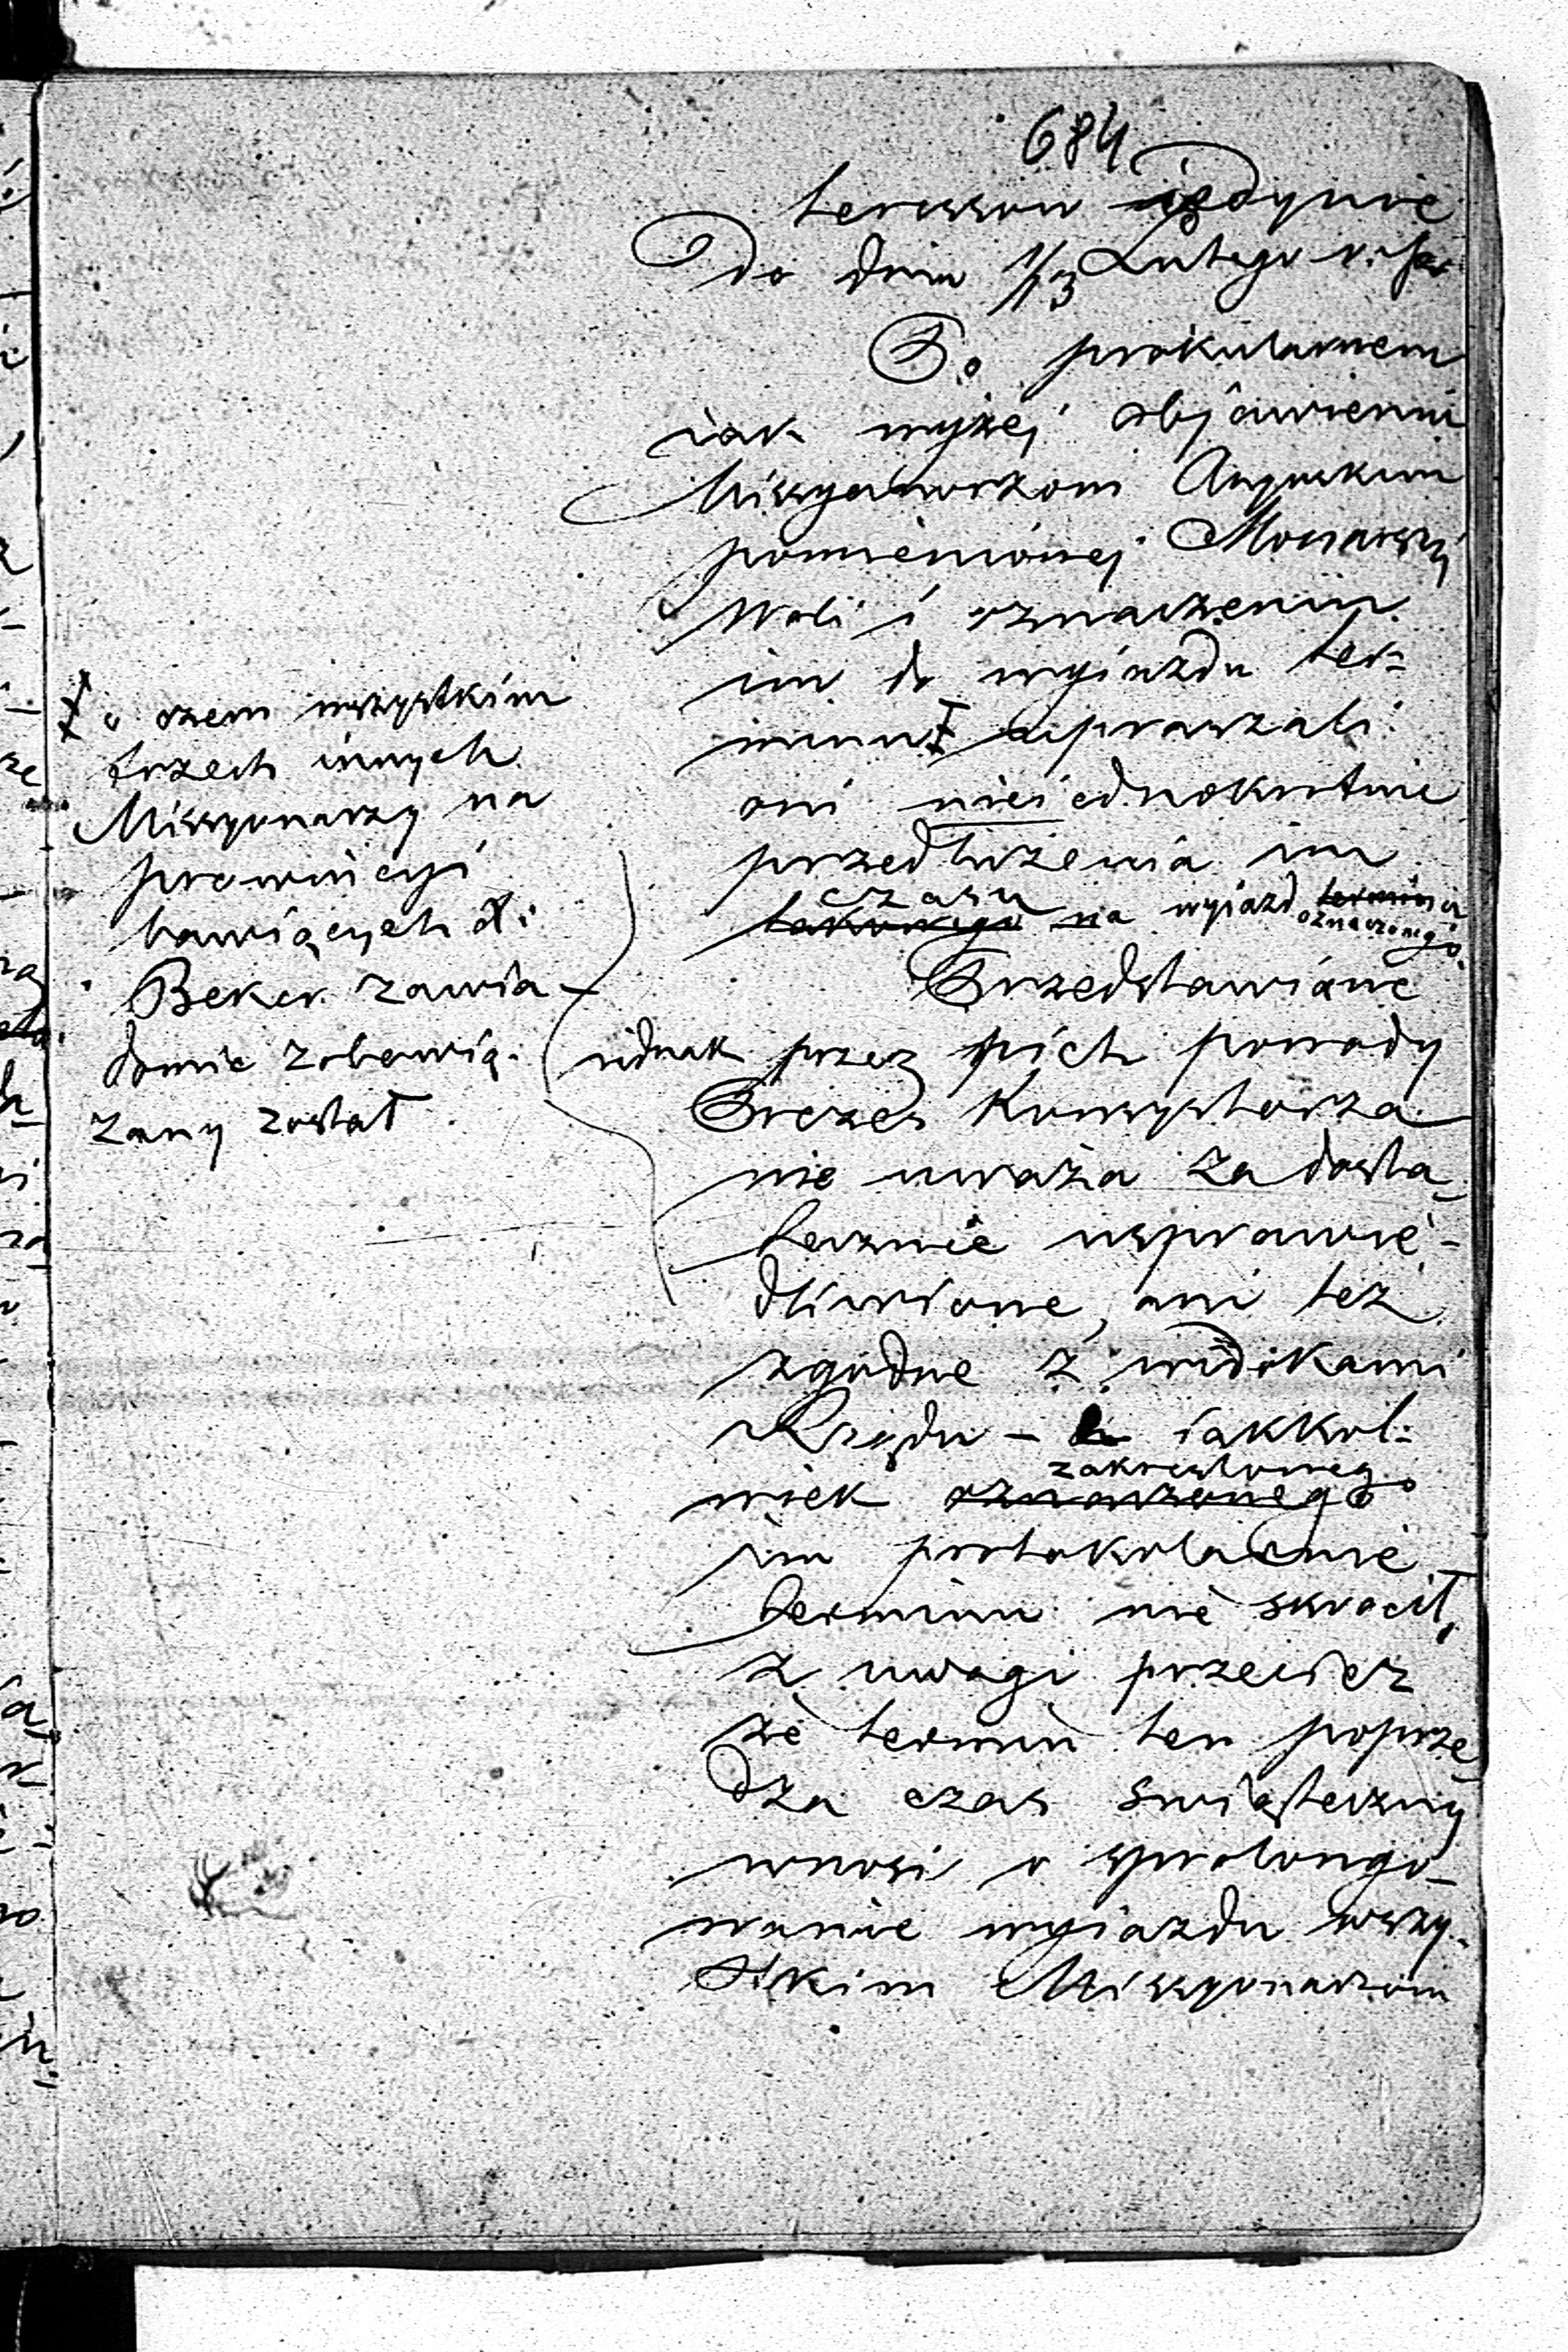 684
teressow iedynie
do dnia 1/13 Lutego r. b.
Po protokularnem
iak wyżej obiawieniu
Missyonarzom Angielskim
pomienionej Monarszej
Woli i oznaczeniu
im do wyiazdu ter-
minu ‡ upraszali
oni nieiednokrotnie
przedłużenia im
czasu
takowego na wyiazd terminu
oznaczonego.
Przedstawione
iednak przez nich powody
Prezes Konsystorza
nie uważa za dosta-
tecznie usprawie-
dliwione, ani też
zgodne z widokami
Rządu – iakkol-
zakreślonego
wiek oznaczonego
im protokolarnie
terminu nie skrócił,
z uwagi przecież
że termin ten poprze
dza czas świąteczny
wnosi o sprolongo-
wanie wyiazdu wszy-
stkim Missyonarzom
‡ o czem wszystkim
trzech innych
Missyonarzy na
prowincyi
bawiących
Beker zawia-
domić zobowią-
zany został